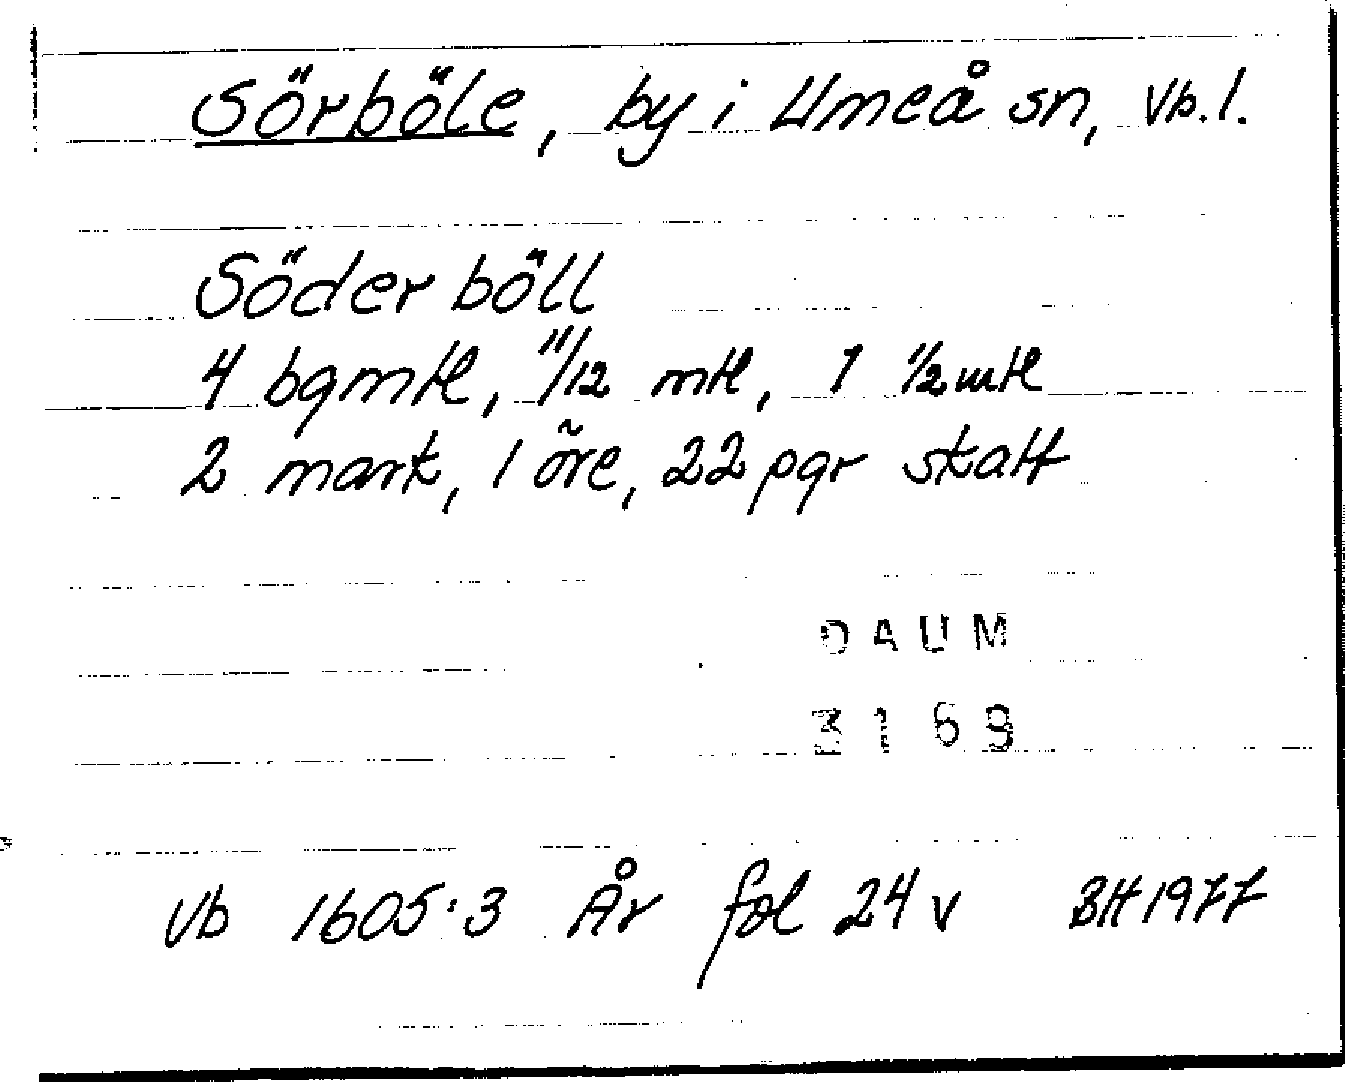 Sörböle, by i Umeå sn, Vb. l.
Söder böll
4 bgmtl, 11/12 mtl, 1 1/2 mtl
2 mark, 1 öre, 22 pgr skatt
DAUM
3169
Vb 1605:3 År fol 24 v BH 1977